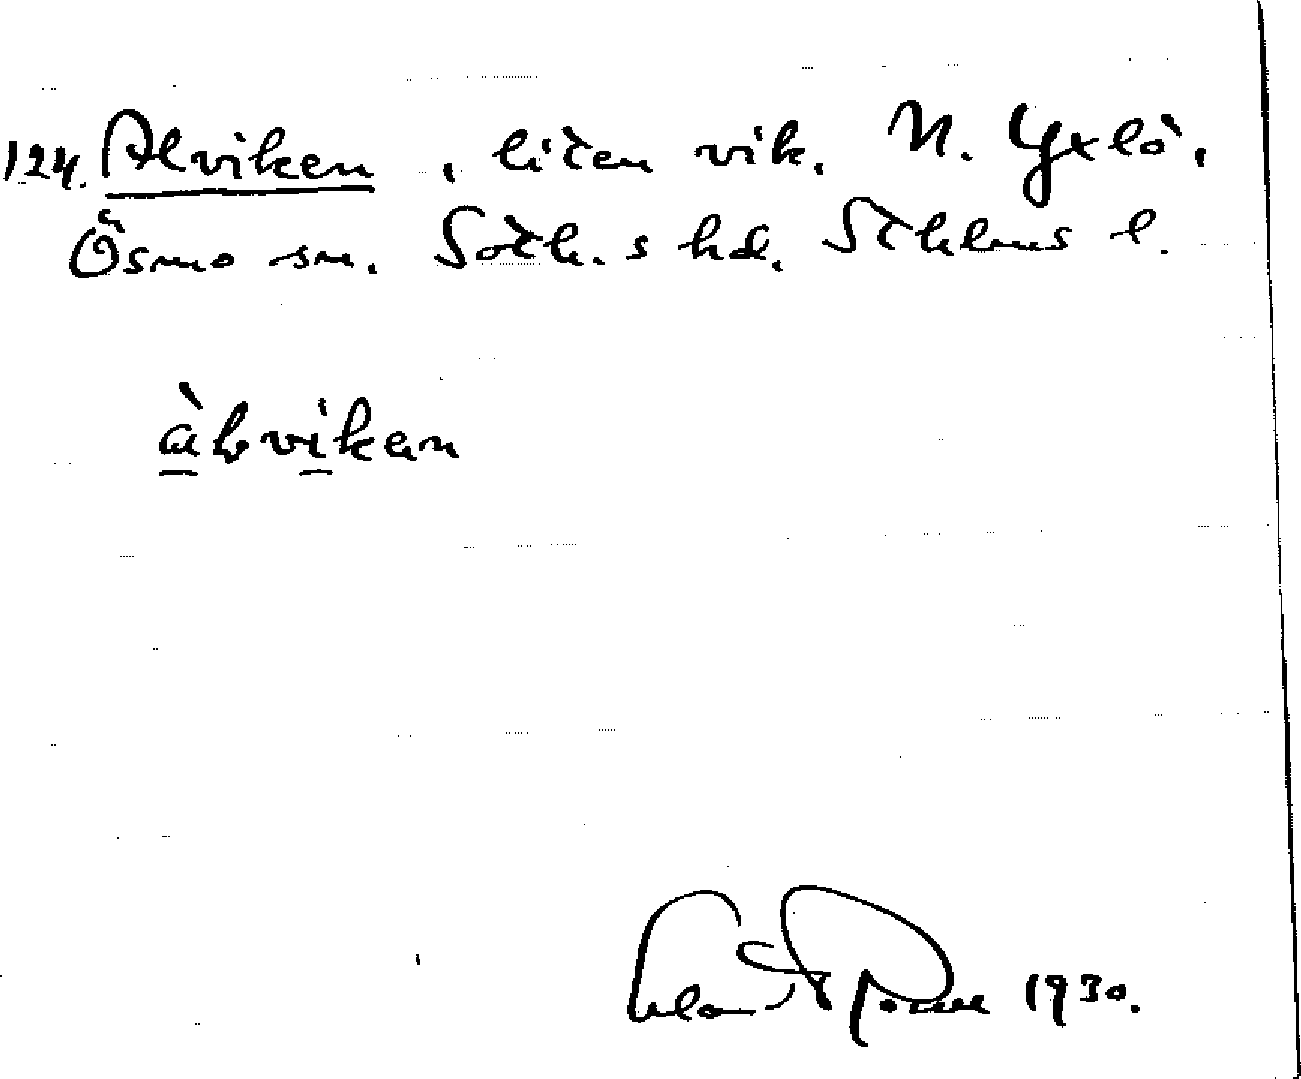 124. Alviken, liten vik. N. Yxlö,
Ösmo sn. Soth.s hd. Sthlms l.
àlviken
1930.